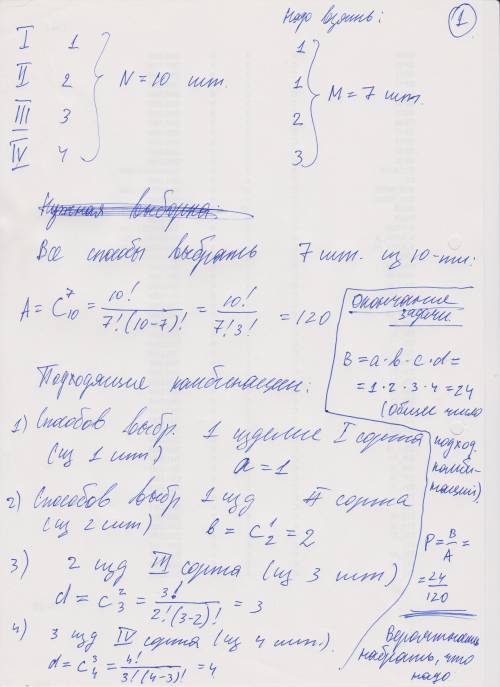 Надо взять: 1
I 1 1
II 2 N = 10 шт. 1 M = 7 шт.
III 3 2
IV 4 3
Нужная выборка:
Все способы выбрать 7 шт. из 10-ти:
A = C₁₀⁷ = 10! / 7!(10-7)! = 10! / 7! 3! = 120
Подходящие комбинации:
1) Способов выбр. 1 изделие I сорта
(из 1 шт) a = 1
2) Способов выбр 1 изд II сорта
(из 2 шт) b = C₂¹ = 2
3) 2 изд III сорта (из 3 шт)
d = C₃² = 3! / 2!(3-2)! = 3
4) 3 изд IV сорта (из 4 шт.)
d = C₄³ = 4! / 3!(4-3)! = 4
Окончание
задачи
B = a·b·c·d =
= 1·2·3·4 = 24
(Общее число
подход.
комби-
наций).
P = B/A =
= 24/120
Вероятность
набрать, что
надо